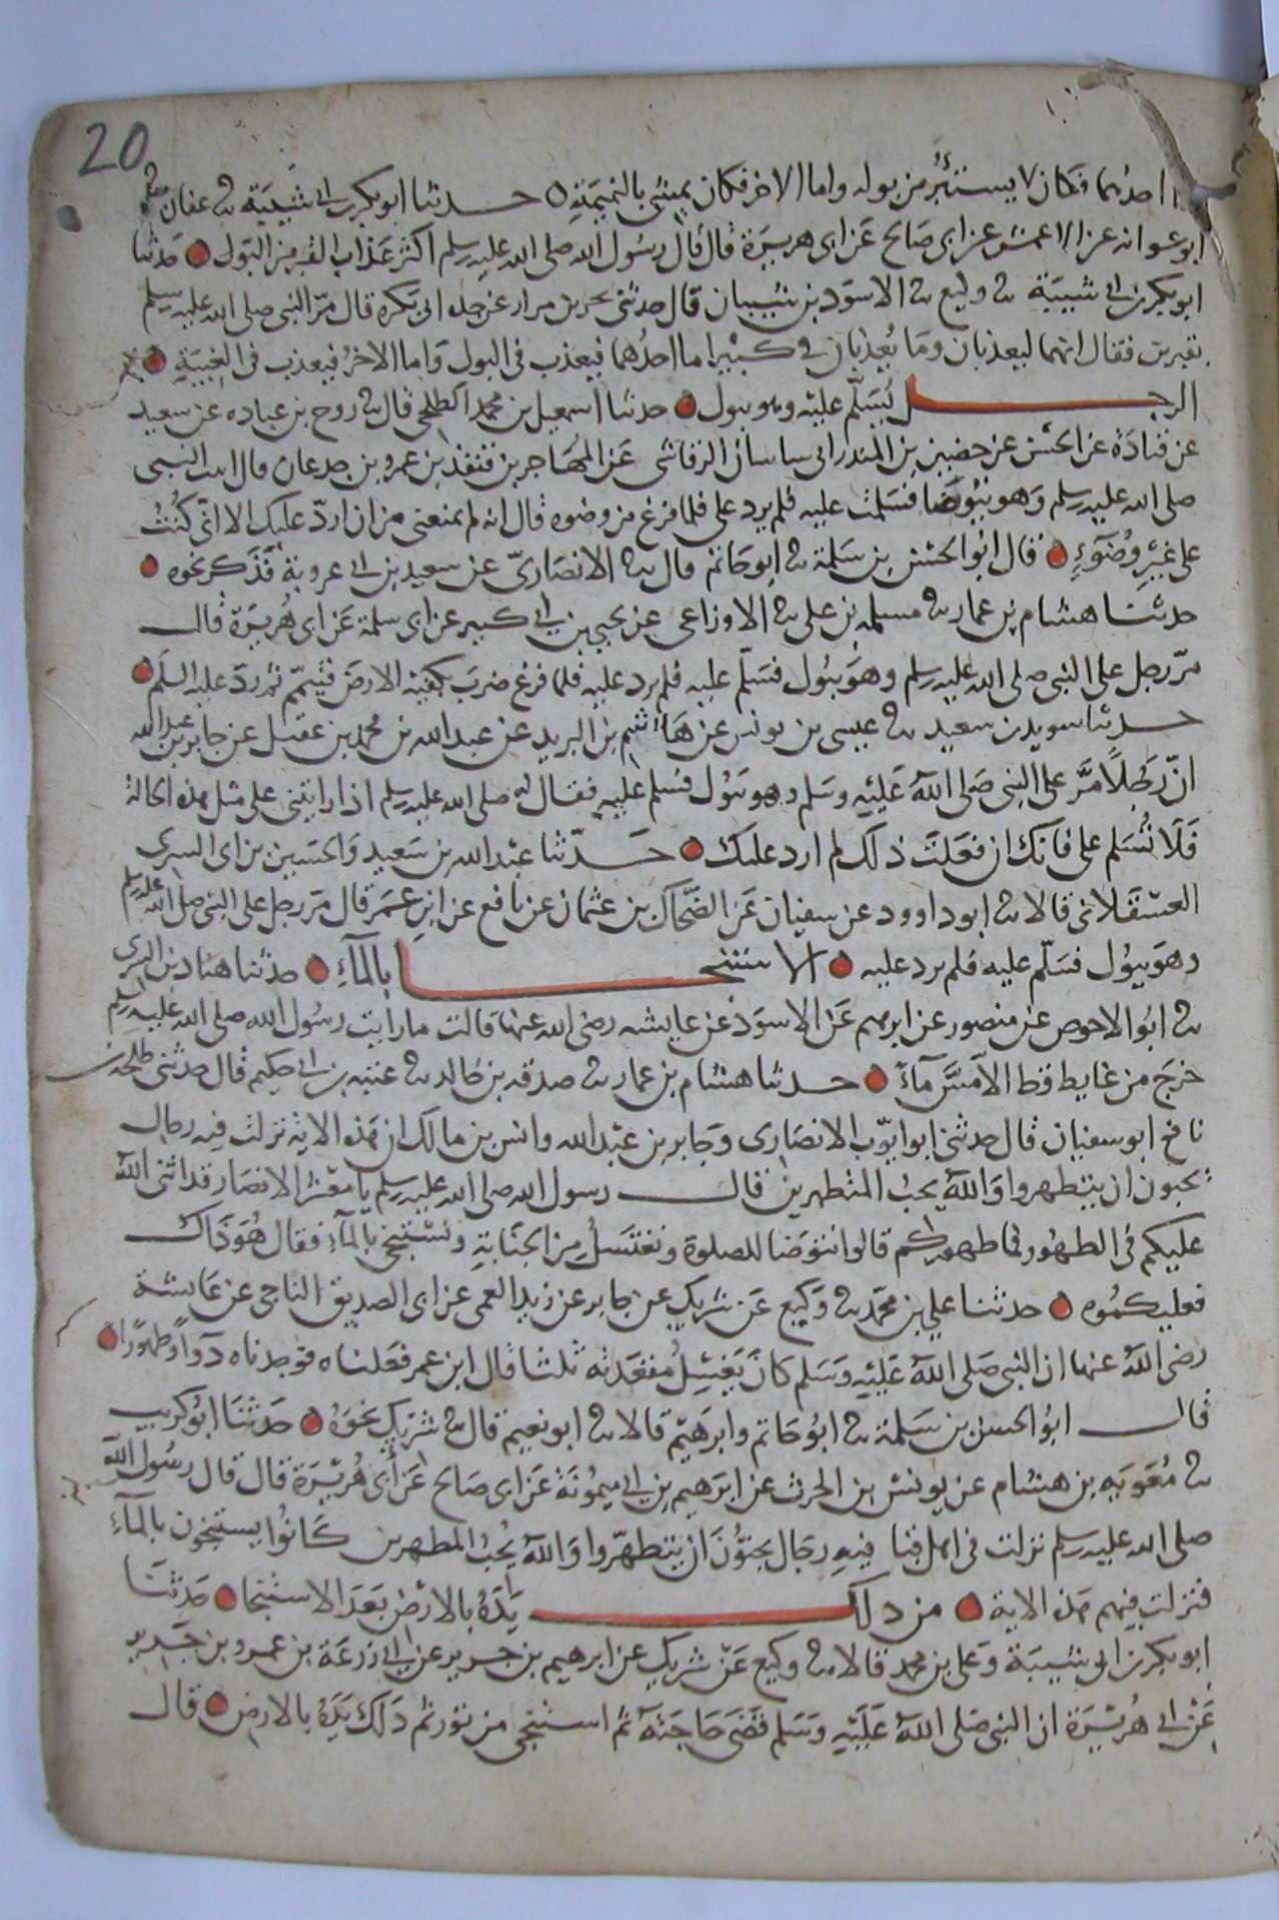 20
احدهما فكان لا يستنزه من بوله واما الاخر فكان يمشى بالنميمة ه حدثنا ابو بكر بن ابى شيبة ثنا عفان ثنا
ابو عوانه عن الاعمش عن ابى صالح عن ابى هريرة قال قال رسول الله صلى الله عليه وسلم اكثر عذاب القبر من البول حدثنا
ابو بكر بن ابى شيبة ثنا وكيع ثنا الاسود بن شيبان قال حدثنى بحر بن مرار عن جده ابى بكره قال مر النبى صلى الله عليه وسلم
بقبرين فقال انهما ليعذبان وما يعذبان فى كبير اما احدهما فيعذب فى البول واما الاخر فيعذب فى الغيبة
الرجل يسلم عليه وهو يبول حدثنا اسمعيل بن محمد الطلحى قال ثنا روح بن عباده عن سعيد
عن قتادة عن الحسن عن حضين بن المنذر ابى ساسان الرقاشى عن المهاجر بن قنفذ بن عمرو بن جدعان قال اتيت النبى
صلى الله عليه وسلم وهو يتوضا فسلمت عليه فلم يرد على فلما فرغ من وضوه قال انه لم يمنعنى من ان ارد عليك الا انى كنت
على غير وضوء قال ابو الحسن بن سلمة ثنا ابو حاتم قال ثنا الانصارى عن سعيد بن ابى عروبة فذكر نحوه
حدثنا هشام بن عمار ثنا مسلمه بن على ثنا الاوزاعى عن يحيى بن ابى كثير عن ابى سلمة عن ابى هريرة قال
مر رجل على النبى صلى الله عليه وسلم وهو يبول فسلم عليه فلم يرد عليه فلما فرغ ضرب بكفيه الارض فتيمم ثم رد عليه السلم
حدثنا سويد بن سعيد ثنا عيسى بن يونس عن هاشم بن البريد عن عبد الله بن محمد بن عقيل عن جابر بن عبد الله
ان رجلا مر على النبى صلى الله عليه وسلم وهو يبول فسلم عليه فقال له صلى الله عليه وسلم اذا رايتنى على مثل هذه الحالة
فلا تسلم على فانك ان فعلت ذلك لم ارد عليك حدثنا عبد الله بن سعيد والحسين بن ابى السرى
العسقلانى قالا ثنا ابو داوود عن سفيان عن الضحاك بن عثمان عن نافع عن ابن عمر قال مر رجل على النبى صلى الله عليه وسلم
وهو يبول فسلم عليه فلم يرد عليه الاستنجا بالماء حدثنا هناد بن السرى
ثنا ابو الاحوص عن منصور عن ابرهيم عن الاسود عن عايشه رضى الله عنها قالت ما رايت رسول الله صلى الله عليه وسلم
خرج من غايط قط الا مس ماء حدثنا هشام بن عمار ثنا صدقه بن خالد ثنا عتبه بن ابى حكيم قال حدثنى طلحه بن
نافع ابو سفيان قال حدثنى ابو ايوب الانصارى وجابر بن عبد الله وانس بن مالك ان هذه الاية نزلت فيه رجال
يحبون ان يتطهروا والله يحب المتطهرين قال رسول الله صلى الله عليه وسلم يا معشر الانصار قد اثنى الله
عليكم فى الطهور فما طهوركم قالوا نتوضا للصلوة ونغتسل من الجنابة ونستنجى بالماء فقال هو ذاك
فعليكموه حدثنا على بن محمد ثنا وكيع عن شريك عن جابر عن زيد العمى عن ابى الصديق الناجى عن عايشة
رضى الله عنها ان النبى صلى الله عليه وسلم كان يغسل مقعدته ثلثا قال ابن عمر فعلناه فوجدناه دواء وطهورا
قال ابو الحسن بن سلمة ثنا ابو حاتم وابرهيم قالا ثنا ابو نعيم قال ثنا شريك نحوه حدثنا ابو كريب
ثنا معويه بن هشام عن يونس بن الحرث عن ابرهيم بن ابى ميمونة عن ابى صالح عن ابى هريرة قال قال رسول الله
صلى الله عليه وسلم نزلت فى اهل قبا فيه رجال يحبون ان يتطهروا والله يحب المطهرين كانوا يستنجون بالماء
فنزلت فيهم هذه الاية من دلك يده بالارض بعد الاستنجا حدثنا
ابو بكر بن ابى شيبة وعلى بن محمد قالا ثنا وكيع عن شريك عن ابرهيم بن جرير عن ابى زرعة بن عمرو بن جرير
عن ابى هريرة ان النبى صلى الله عليه وسلم قضى حاجته ثم استنجى من تور ثم دلك يده بالارض قال